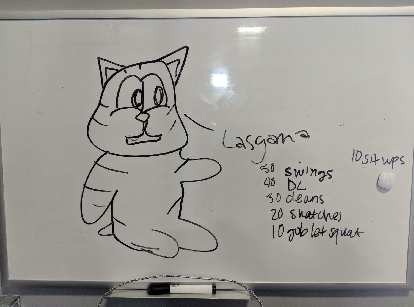 Lasgama
10 situps
50 swings
40 DL
30 cleans
20 snatches
10 goblet squat